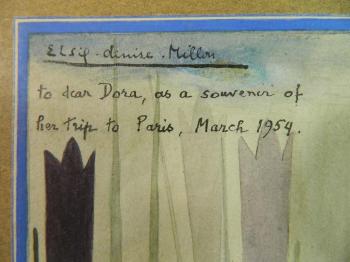 Elsie-denise-Millon
to dear Dora, as a souvenir of
her trip to Paris, March 1954.